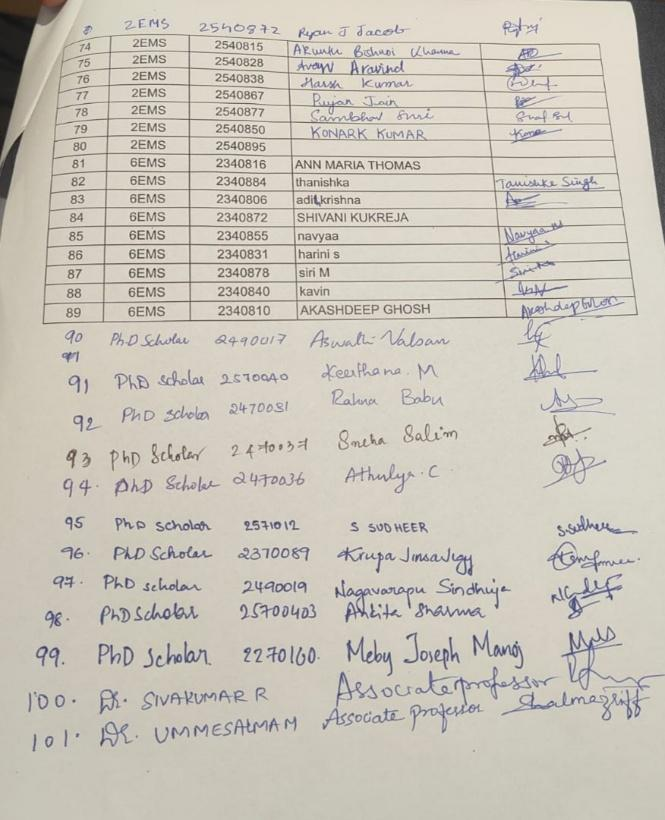 2EMS 2540872 Ryan J Jacob
74 2EMS 2540815 Bishnoi Khanna
75 2EMS 2540828 Aravind
76 2EMS 2540838 Harsh Kumar
77 2EMS 2540867 Pujan Jain
78 2EMS 2540877 Sambhav
79 2EMS 2540850 KONARK KUMAR
80 2EMS 2540895
81 6EMS 2340816 ANN MARIA THOMAS
82 6EMS 2340884 thanishka Tanishka Singh
83 6EMS 2340806
84 6EMS 2340872 SHIVANI KUKREJA
85 6EMS 2340855 navyaa Navyaa
86 6EMS 2340831 harini s
87 6EMS 2340878 siri M
88 6EMS 2340840 kavin
89 6EMS 2340810 AKASHDEEP GHOSH
90 PhD Scholar 2490017 Aswathi Valsan
91 PhD Scholar 2570040 Keerthana. M
92 PhD Scholar Rahna Babu
93 PhD Scholar 2470037 Sneha Salim
94. PhD Scholar 2470036 Athulya. C
95 PhD Scholar 2571012 S SUDHEER S.Sudheer
96. PhD Scholar 2370089 Krupa
97. PhD scholar 2490019 Nagavarapu Sindhuja
98. PhD Scholar 25700403 Ankita Sharma
99. PhD Scholar 2270160. Meby Joseph Manoj
100. Dr. SIVAKUMAR R Associate professor
101. Dr. UMMESALMAM Associate professor